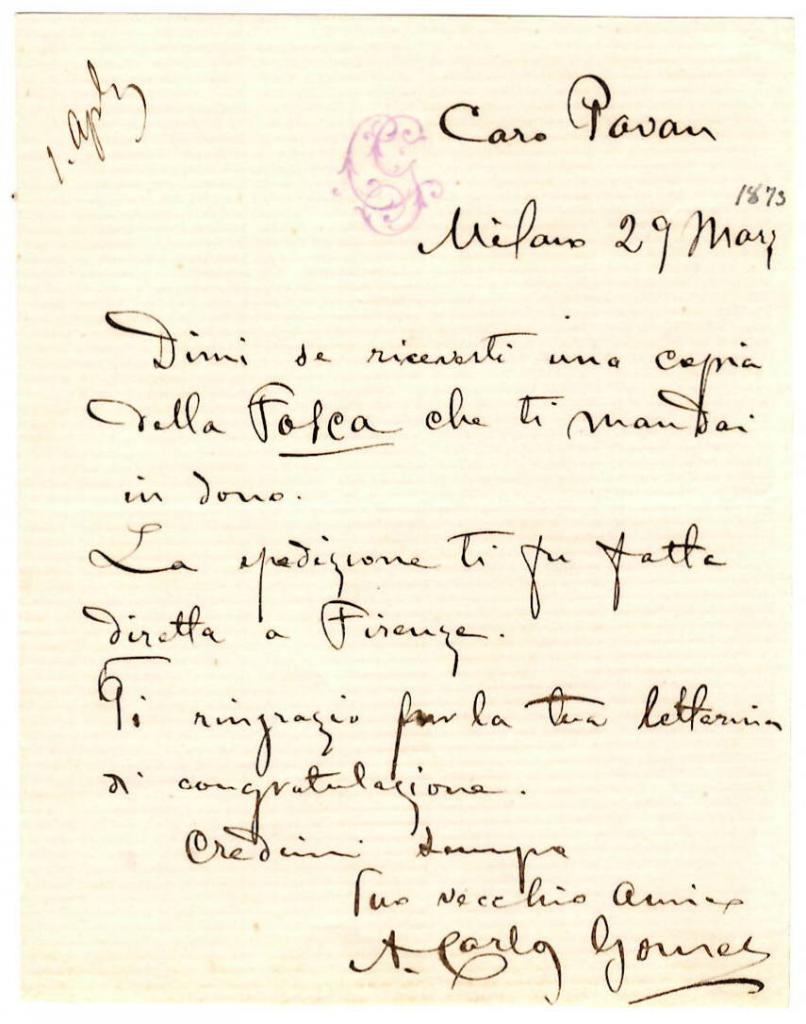 1. Aple
Caro Pavan
1873
Milano 29 Marz
Dimi se ricevesti una copia
della Fosca che ti mandai
in dono.
La spedizione ti fu fatta
diretta a Firenze.
Ti ringrazio per la tua letterina
di congratulazione.
Credimi sempre
Tuo vecchio amico
A. Carlos Gomes